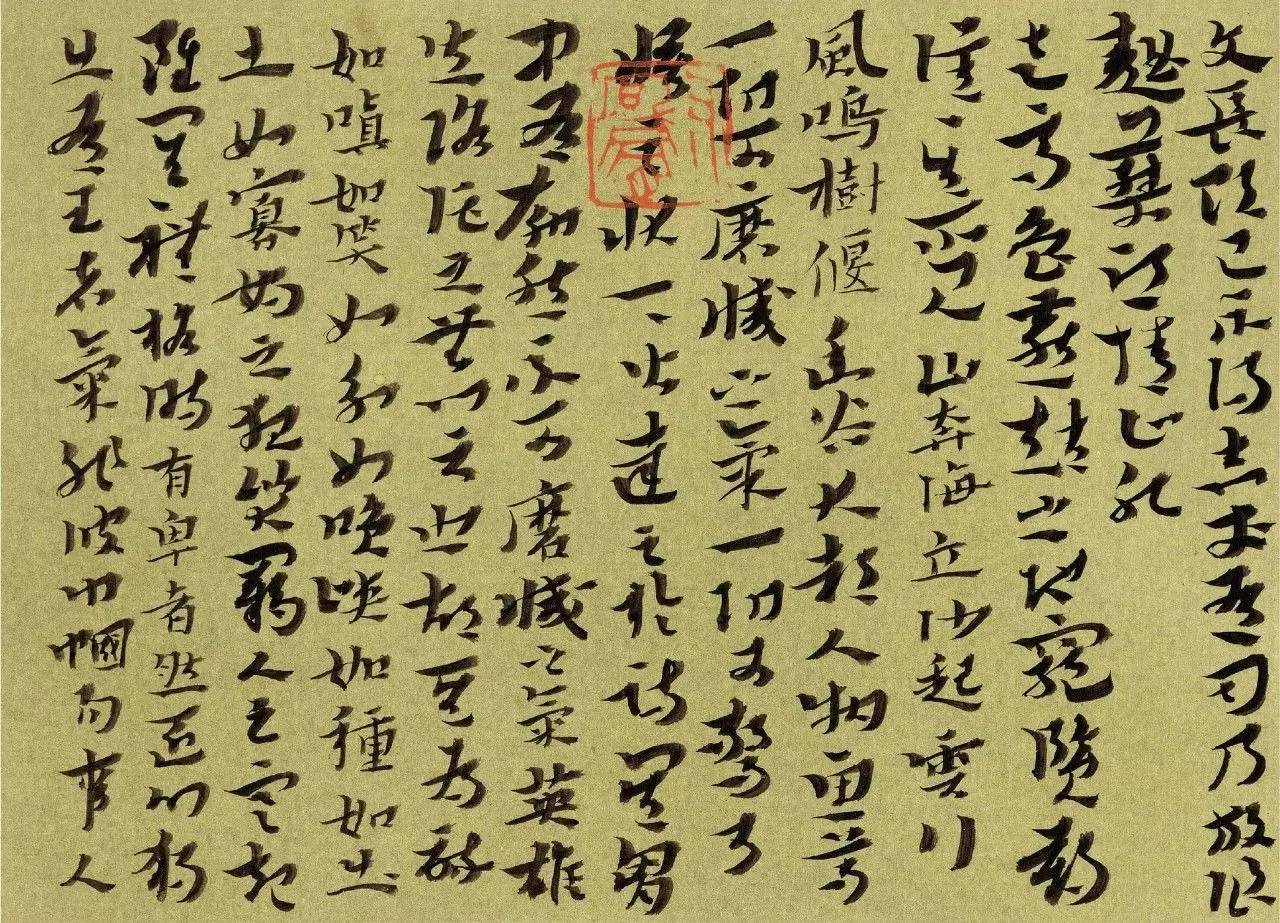 文長既已不得志于有司乃放浪
麴蘗恣情山水
走齊魯燕趙之地窮覽朔
漠其所見山奔海立沙起雲行
風鳴樹偃幽谷大都人物魚鳥
一切可磨滅之氣一切可驚可
愕之狀一一皆達之於詩其胸
中有勃然不可磨滅之氣英雄
失路托足無門之悲故其為詩
如嗔如笑如水如鳴峽如種如出
土如寡婦之夜哭羈人之寒起
雖其體格時有卑者然匠心獨
出有王者氣非彼巾幗而事人